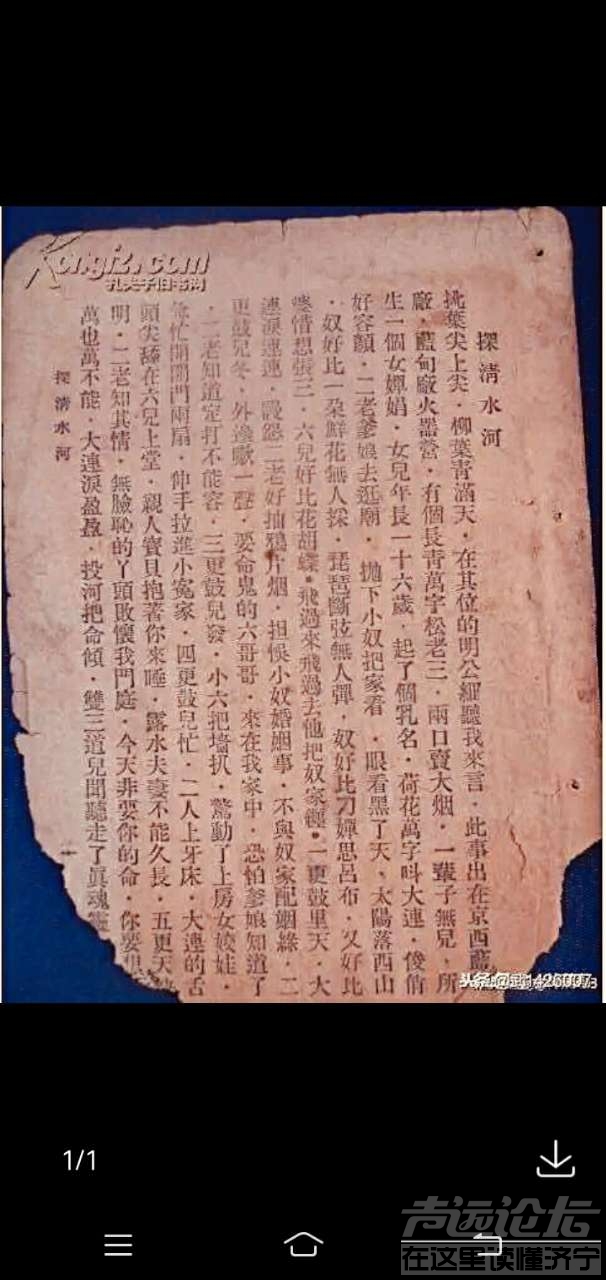 Kongfz.com
孔夫子旧书网
探清水河
桃葉尖上尖．柳葉青滿天．在其位的明公細聽我來言．此事出在京西藍
廠．藍甸廠火器營．有個長青萬字松老三．兩口賣大烟．一輩子無兒．所
生一個女嬋娟．女兒年長一十六歲．起了個乳名．荷花萬字呌大連．俊俏
好容顏．二老爹娘去逛廟．拋下小奴把家看．眼看黑了天、太陽落西山
．奴好比一朶鮮花無人採．琵琶斷弦無人彈．奴好比刁嬋思呂布．又好比
鶯惜想張三．六兒好比花胡蝶．飛過來飛過去他把奴家纏．一更鼓里天．大
連淚連連．沒怨二老好抽鴉片烟．担悞小奴婚姻事．不與奴家配姻緣．二
更鼓兒冬．外邊嗽一聲．要命鬼的六哥哥．來在我家中．恐怕爹娘知道了
．二老知道定打不能容．三更鼓兒發．小六把墻扒．驚動了上房女姣娃．
忙開開門兩扇．伸手拉進小冤家．四更鼓兒忙．二人上牙床．大連的舌
頭尖舔在六兒上堂．親人寶貝抱著你來睡．露水夫妻不能久長．五更天
明．二老知其情．無臉恥的丫頭敗懷我門庭．今天非要你的命．你要想
萬也萬不能．大連淚盈盈．投河把命傾．雙三道兒聞聽走了眞魂靈
探清水河
头条@
1/1
声远论坛
在这里读懂济宁